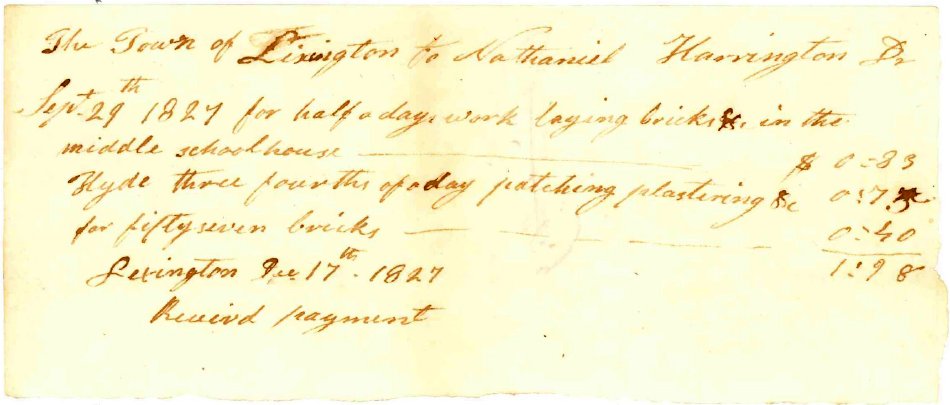 The Town of Lexington to Nathaniel Harrington Dr
Sept. 29th 1827 for half a days work laying bricks &c. in the
middle schoolhouse $ 0=83
Hyde three fourths of a day patching plastering &c 0:75
for fiftyseven bricks 0=40
1:98
Lexington Dec 17th 1827
Receivd payment